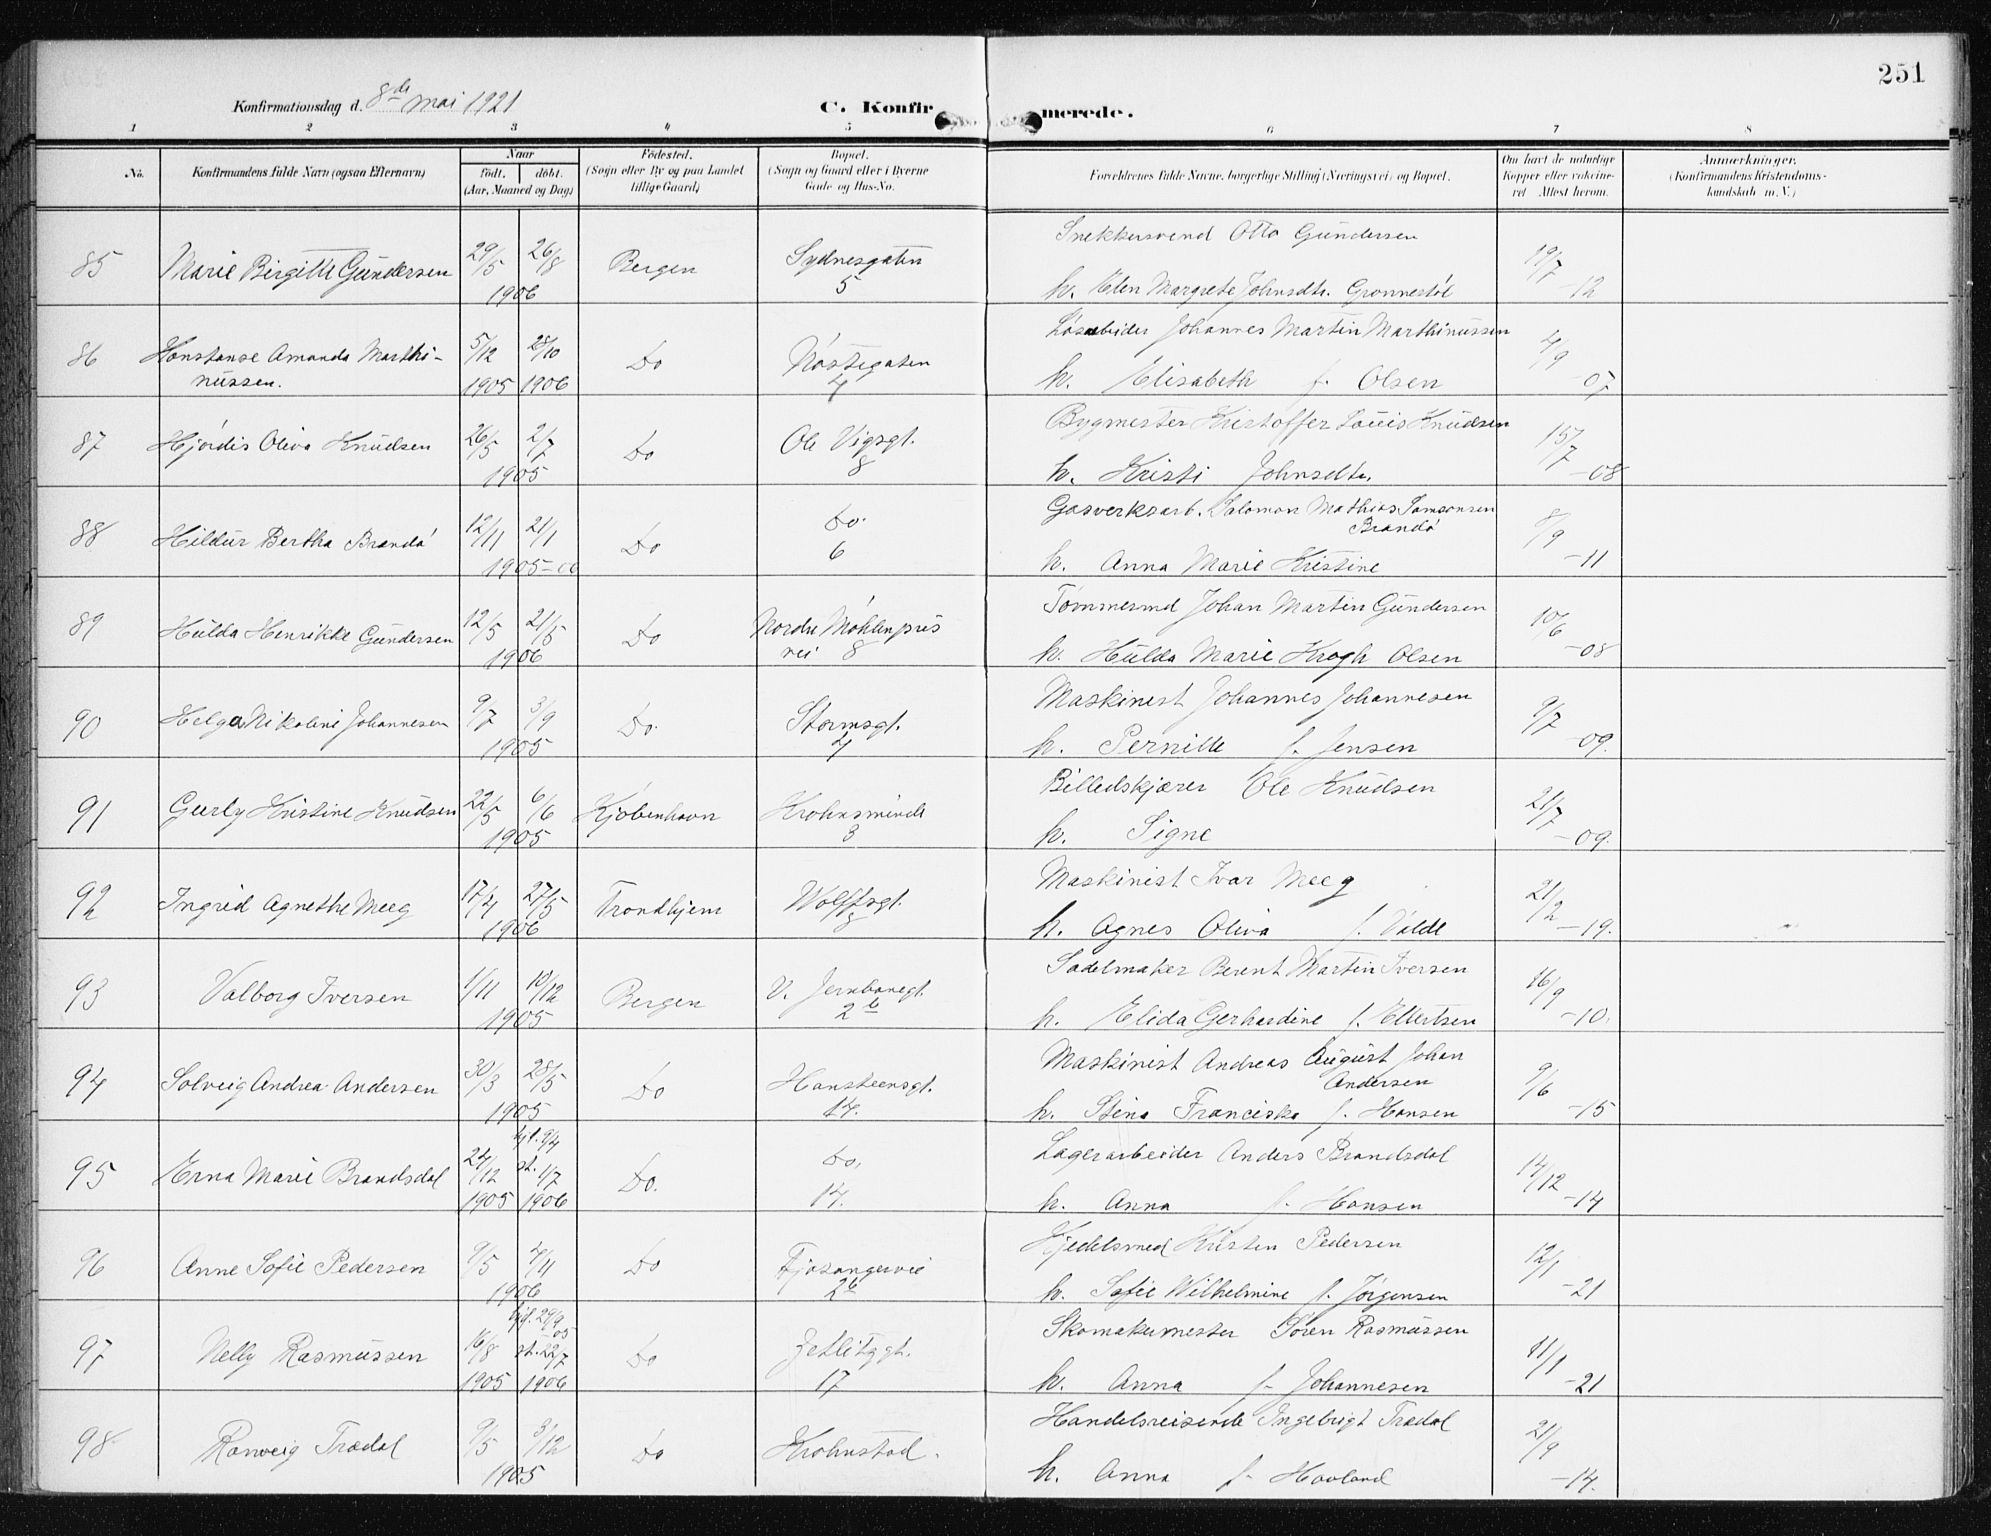 251
Konfirmationsdag d. 8de mai 1921
C. Konfirmerede.
1 2 3 4 5 6 7 8
No.
Konfirmandens fulde Navn (ogsaa Efternavn)
Naar
født. døbt.
(Aar, Maaned og Dag)
Fødested.
(Sogn eller By og paa Landet
tillige Gaard)
Bopæl.
(Sogn og Gaard eller i Byerne
Gade og Hus-No.
Forældrenes fulde Navne, borgerlige Stilling (Næringsvei) og Bopæl.
Om havt de naturlige
Kopper eller vakcine-
ret Attest herom.
Anmærkninger.
(Konfirmandens Kristendoms-
kundskab m. V.)
85 Marie Birgitte Gundersen 29/5 26/8 1906 Bergen Sydnesgaten 5
Snekkersvend Otto Gundersen 19/7 -12
h. Elen Margrete Johnsdtr. Grønnestøl
86 Konstanse Amanda Marthi-
nussen. 5/12 1905 28/10 1906 Do Nøstegaten 4
Løsarbeider Johannes Martin Marthinussen 4/9 -07
h. Elisabeth f. Olsen
87 Hjørdis Oliva Knudsen 26/5 2/7 1905 Do Ole Vigsgt. 8
Bygmester Kristoffer Louis Knudsen 15/7 -08
h. Kristi Johnsdtr.
88 Hildur Bertha Brandø 12/11 21/1 1905-06 Do do. 6
Gasverksarb. Salomon Mathias Samsonsen
Brandø 8/9 -11
h. Anna Marie Kristine
89 Hulda Henrikke Gundersen 12/5 21/5 1906 Do Nordre Møhlenpris
vei 8
Tømmermd Johan Martin Gundersen 10/6 -08
h. Hulda Marie Krogh Olsen
90 Helga Nikoline Johannesen 9/7 3/9 1905 Do. Stormsgt. 4
Maskinist Johannes Johannesen 9/7 -09.
h. Pernille f. Jensen
91 Gurly Kristine Knudsen 22/5 6/6 1905 Kjøbenhavn Krohnsminde 3
Billedskjærer Ole Knudsen 21/7 -09.
h. Signe
92 Ingrid Agnethe Meeg 17/4 27/5 1906 Trondhjem Wolffsgt. 8
Maskinist Ivar Meeg 21/2 -19.
h. Agnes Oliva f. Volde
93 Valborg Iversen 1/11 10/12 1905 Bergen V. Jernbanegt. 2b
Sadelmaker Berent Martin Iversen 16/9 -10.
h. Elida Gerhardine f. Ellertsen
94 Solveig Andrea Andersen 30/3 28/5 1905 Do Hansteensgt. 14.
Maskinist Andreas August Johan
Andersen 9/6 -15
h. Stina Franciska f. Hansen
95 Erna Marie Brandsdal 24/12 1905 hjd. 9/4 st. 1/7 1906 Do. do. 14.
Lagerarbeider Anders Brandsdal 14/12 -14
h. Anna f. Hansen
96 Anne Sofie Pedersen 9/5 4/11 1906 Do Fjøsangervei 26
Kjedelsmed Kristen Pedersen 12/1 -21
h. Sofie Wilhelmine f. Jørgensen
97 Nelly Rasmussen 16/8 1905 hjd. 29/9 -05 st. 22/7 1906 Do Zetlitzgt. 17
Skomakermester Søren Rasmussen 11/1 -21
h. Anna f. Johannesen
98 Ranveig Trædal 9/5 3/12 1905 Do Krohnstad.
Handelsreisende Ingebrigt Trædal 21/9 -14.
h. Anna f. Hovland